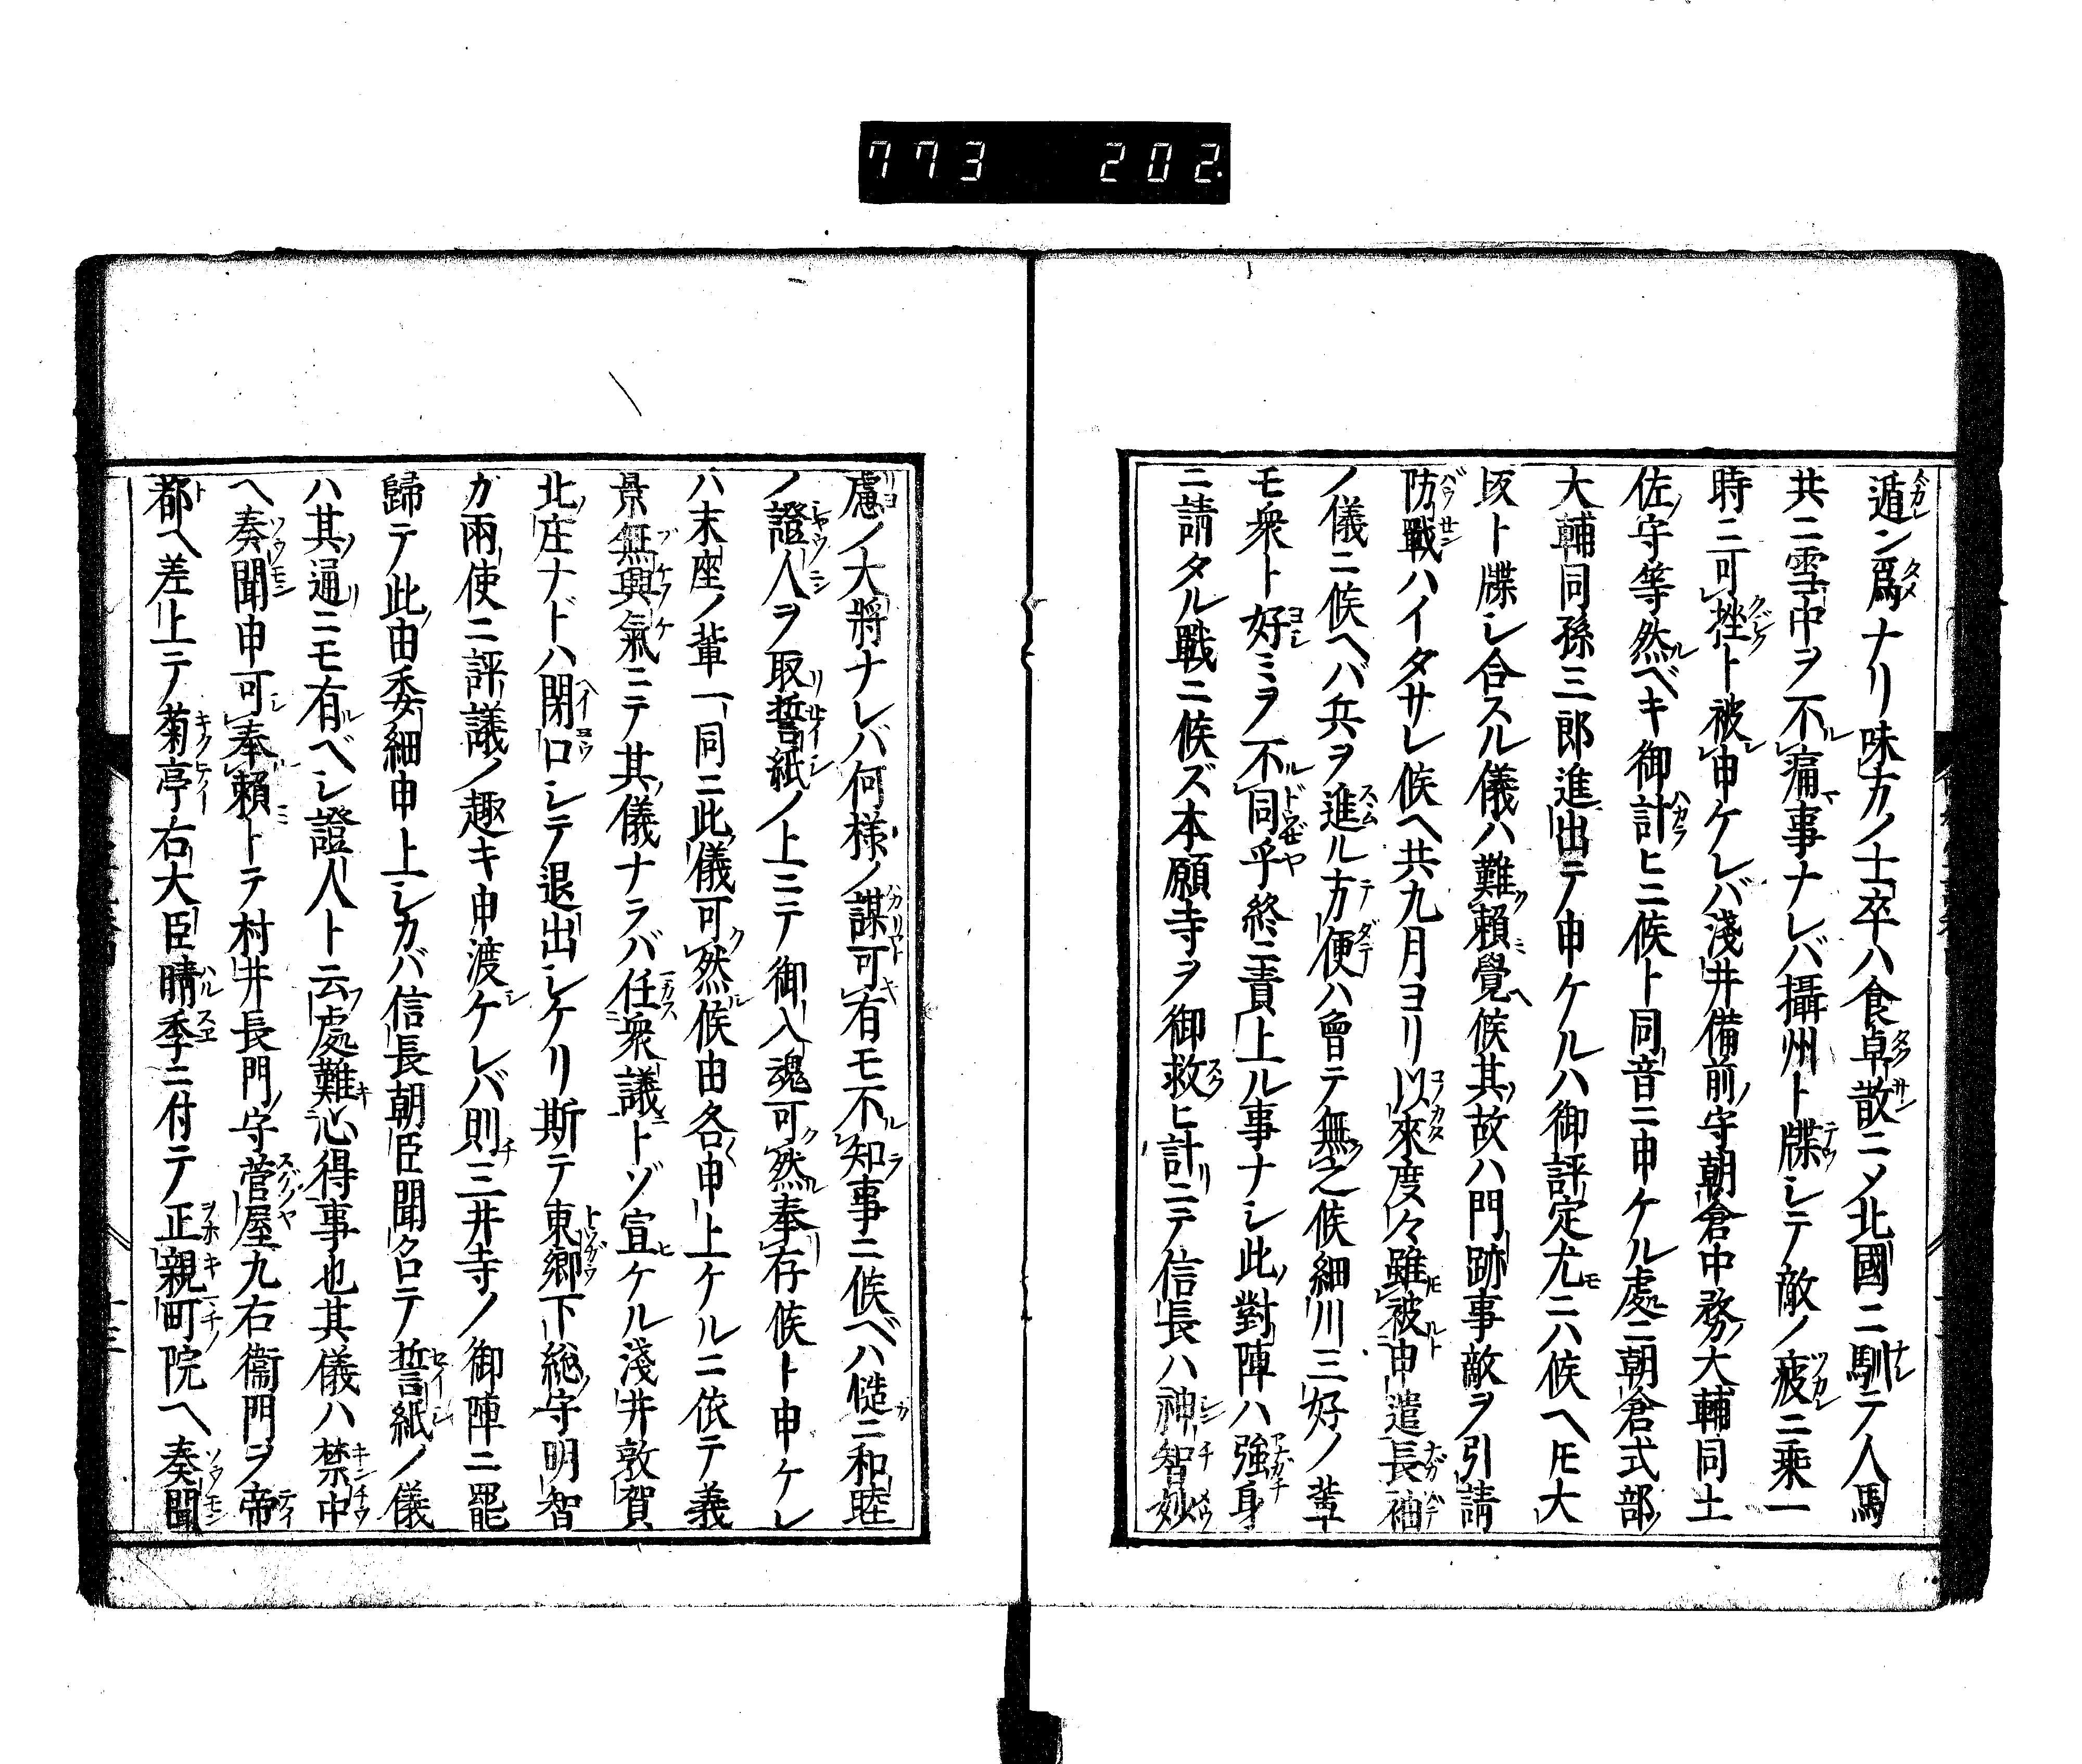 773 202.
遁ン爲ナリ味方ノ士卒ハ食卓散ニメ北國ニ馴テ人馬
共ニ雪中ヲ不痛事ナレバ攝州ト牒シテ敵ノ疲ニ乘一
時ニ可挫ト被申ケレバ淺井備前守朝倉中務大輔同土
佐守等然ベキ御計ヒニ候ト同音ニ申ケル處ニ朝倉式部
大輔同孫三郎進出テ申ケルハ御評定尤ニハ候ヘ𪜈大
坂ト牒シ合スル儀ハ難賴覺候其故ハ門跡事敵ヲ引請
防戰ハイダサレ候ヘ共九月ヨリ以來度々雖被申遣長袖
ノ儀ニ候ヘバ兵ヲ進ル方便ハ曾テ無之候細川三好ノ輩
モ衆ト好ミヲ不同乎終ニ責上ル事ナシ此對陣ハ強身
ニ請タル戰ニ候ズ本願寺ヲ御救ヒ計ニテ信長ハ神智妙
慮ノ大將ナレバ何樣ノ謀可有モ不知事ニ候ベハ慥ニ和睦
ノ證人ヲ取誓紙ノ上ニテ御入魂可然奉存候ト申ケレ
ハ末座ノ輩一同ニ此儀可然候由各申上ケルニ依テ義
景無興氣ニテ其儀ナラバ任衆議トゾ宣ケル淺井敦賀
北庄ナドハ閉口シテ退出シケリ斯テ東郷下総守明智
カ兩使ニ評議ノ趣キ申渡ケレバ則三井寺ノ御陣ニ罷
歸テ此由委細申上シカバ信長朝臣聞召テ誓紙ノ儀
ハ其通ニモ有ベシ證人ト云處難心得事也其儀ハ禁中
ヘ奏聞申可奉賴トテ村井長門守菅屋九右衞門ヲ帝
都ヘ差上テ菊亭右大臣晴季ニ付テ正親町院ヘ奏聞